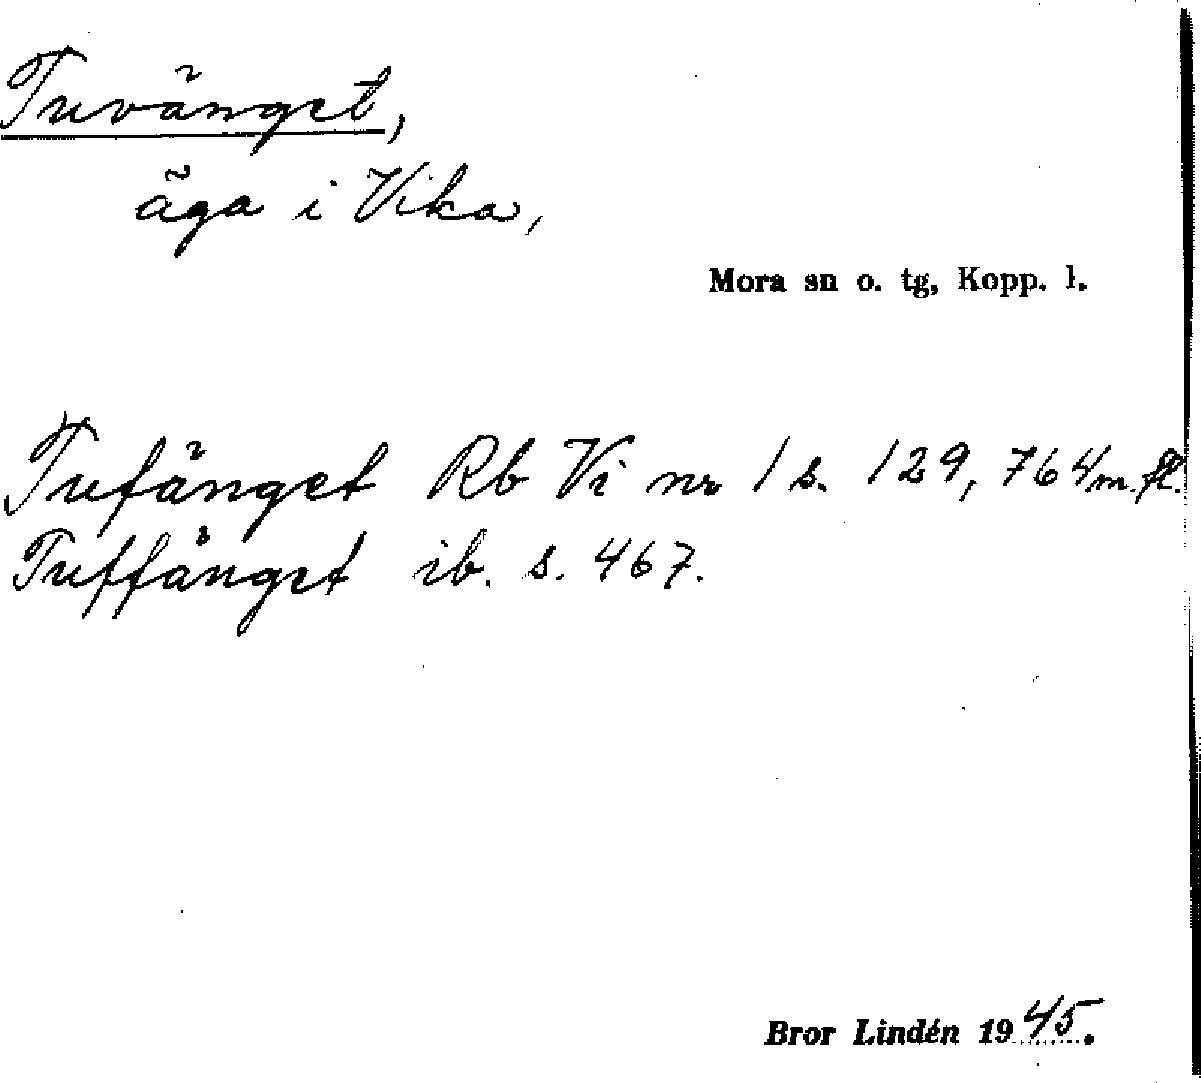 Tuvänget,
äga i Vika,
Mora sn o. tg, Kopp. l.
Tufänget Rb Vi nr 1 s. 129, 764 m. fl.
Tuffänget ib. s. 467.
Bror Lindén 1945.